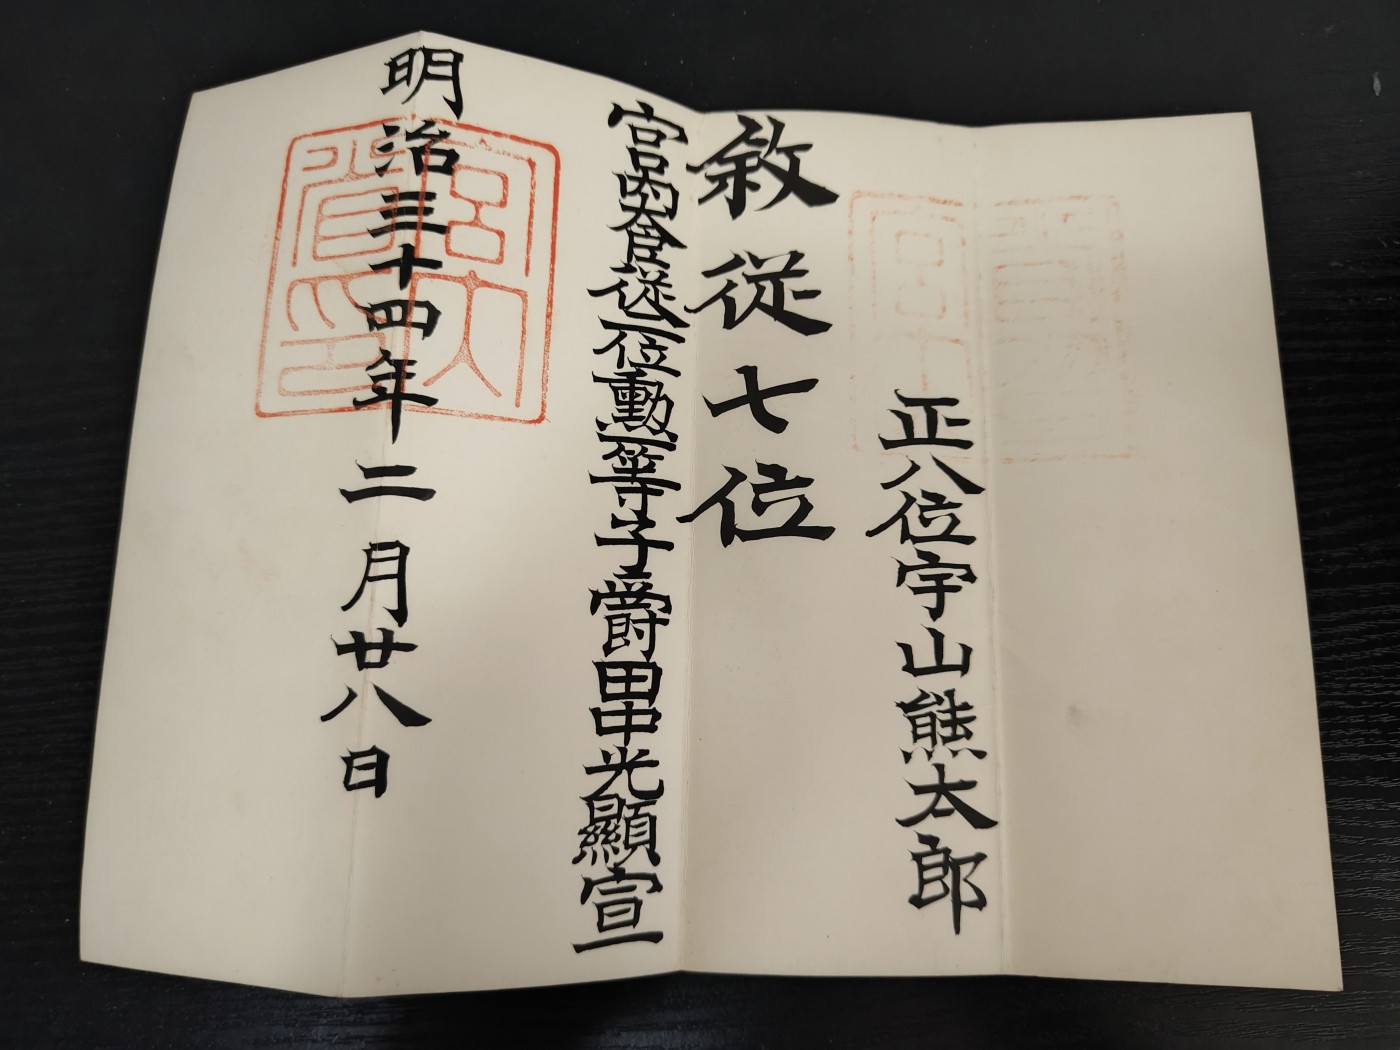 正八位宇山熊太郎
敘從七位
宮内大臣從一位勳一等子爵田中光顯宣
明治三十四年二月廿八日
宮大
官印